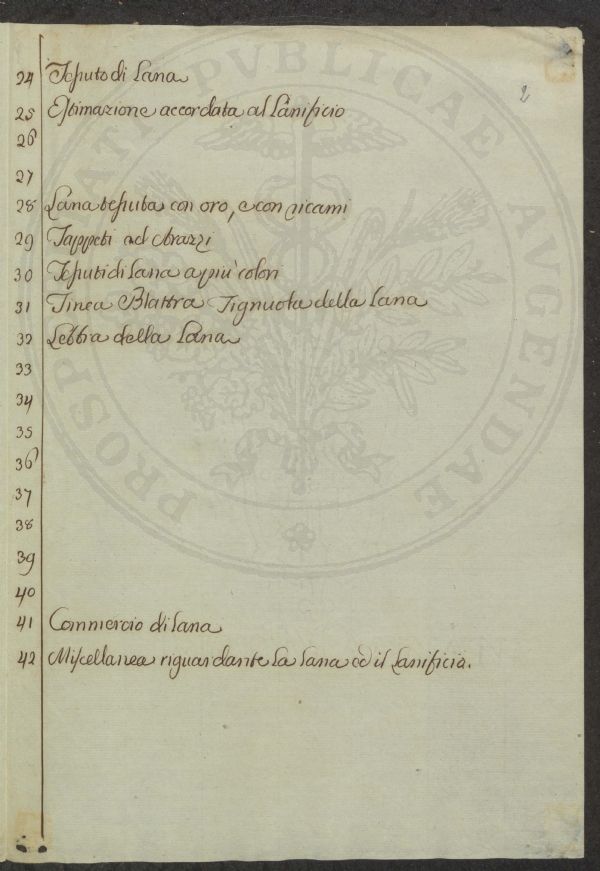 2
24 Tessuto di Lana
25 Estimazione accordata al Lanificio
26
27
28 Lana tessuta con oro, e con ricami
29 Tappeti ad Arazzi
30 Tessuti di Lana a più colori
31 Tinea Blattra Tignuola della Lana
32 Lebbra della Lana
33
34
35
36
37
38
39
40
41 Commercio di Lana
42 Miscellanea riguardante la Lana ed il Lanificio.
PROSPERITATI PVBLICAE AVGENDAE